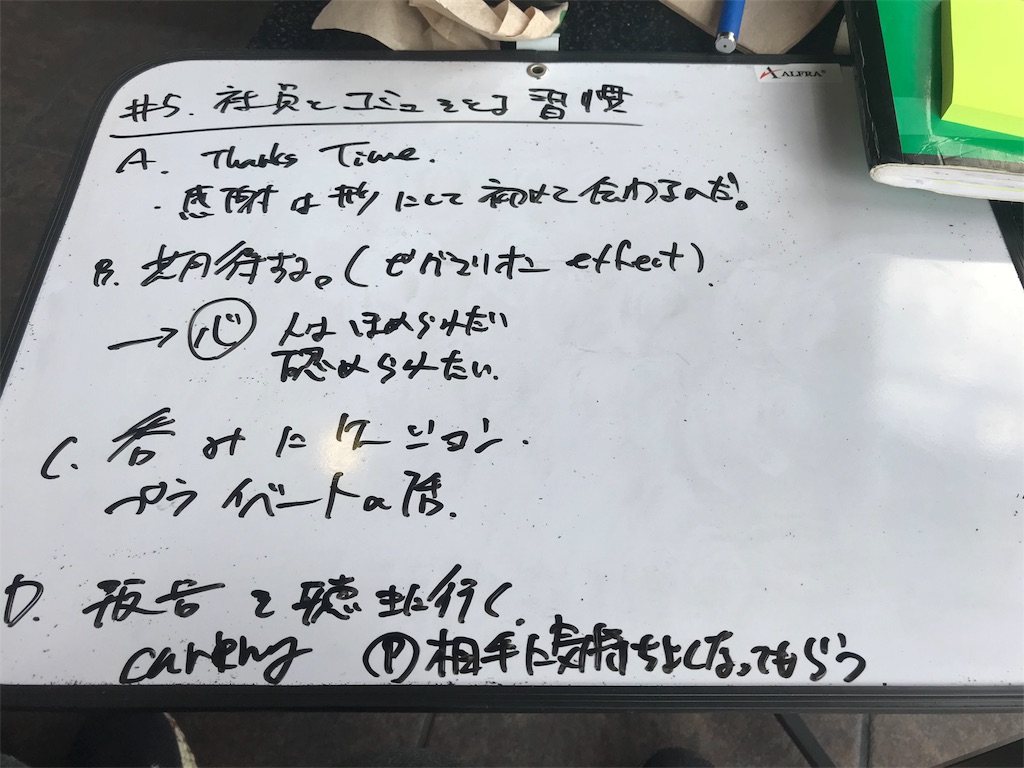 ALFRA
#5. 社員とコミュをとる習慣
A. Thanks Time.
・感謝は形にして初めて伝わるのだ!
B. 期待する。(ピグマリオン effect)
→ 心 人はほめられたい
認められたい.
C. 呑みにケーション.
プライベートの話.
D. 報告を聴きに行く.
(P) 相手に気持ちよくなってもらう